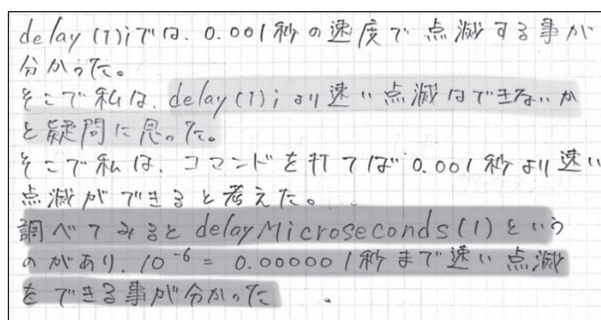 delay(1);では、0.001秒の速度で点滅する事が
分かった。
そこで私は、delay(1);より速い点滅はできないか
と疑問に思った。
そこで私は、コマンドを打てば0.001秒より速い
点滅ができると考えた。
調べてみるとdelayMicroseconds(1)という
のがあり、10⁻⁶=0.000001秒まで速い点滅
をできる事が分かった。